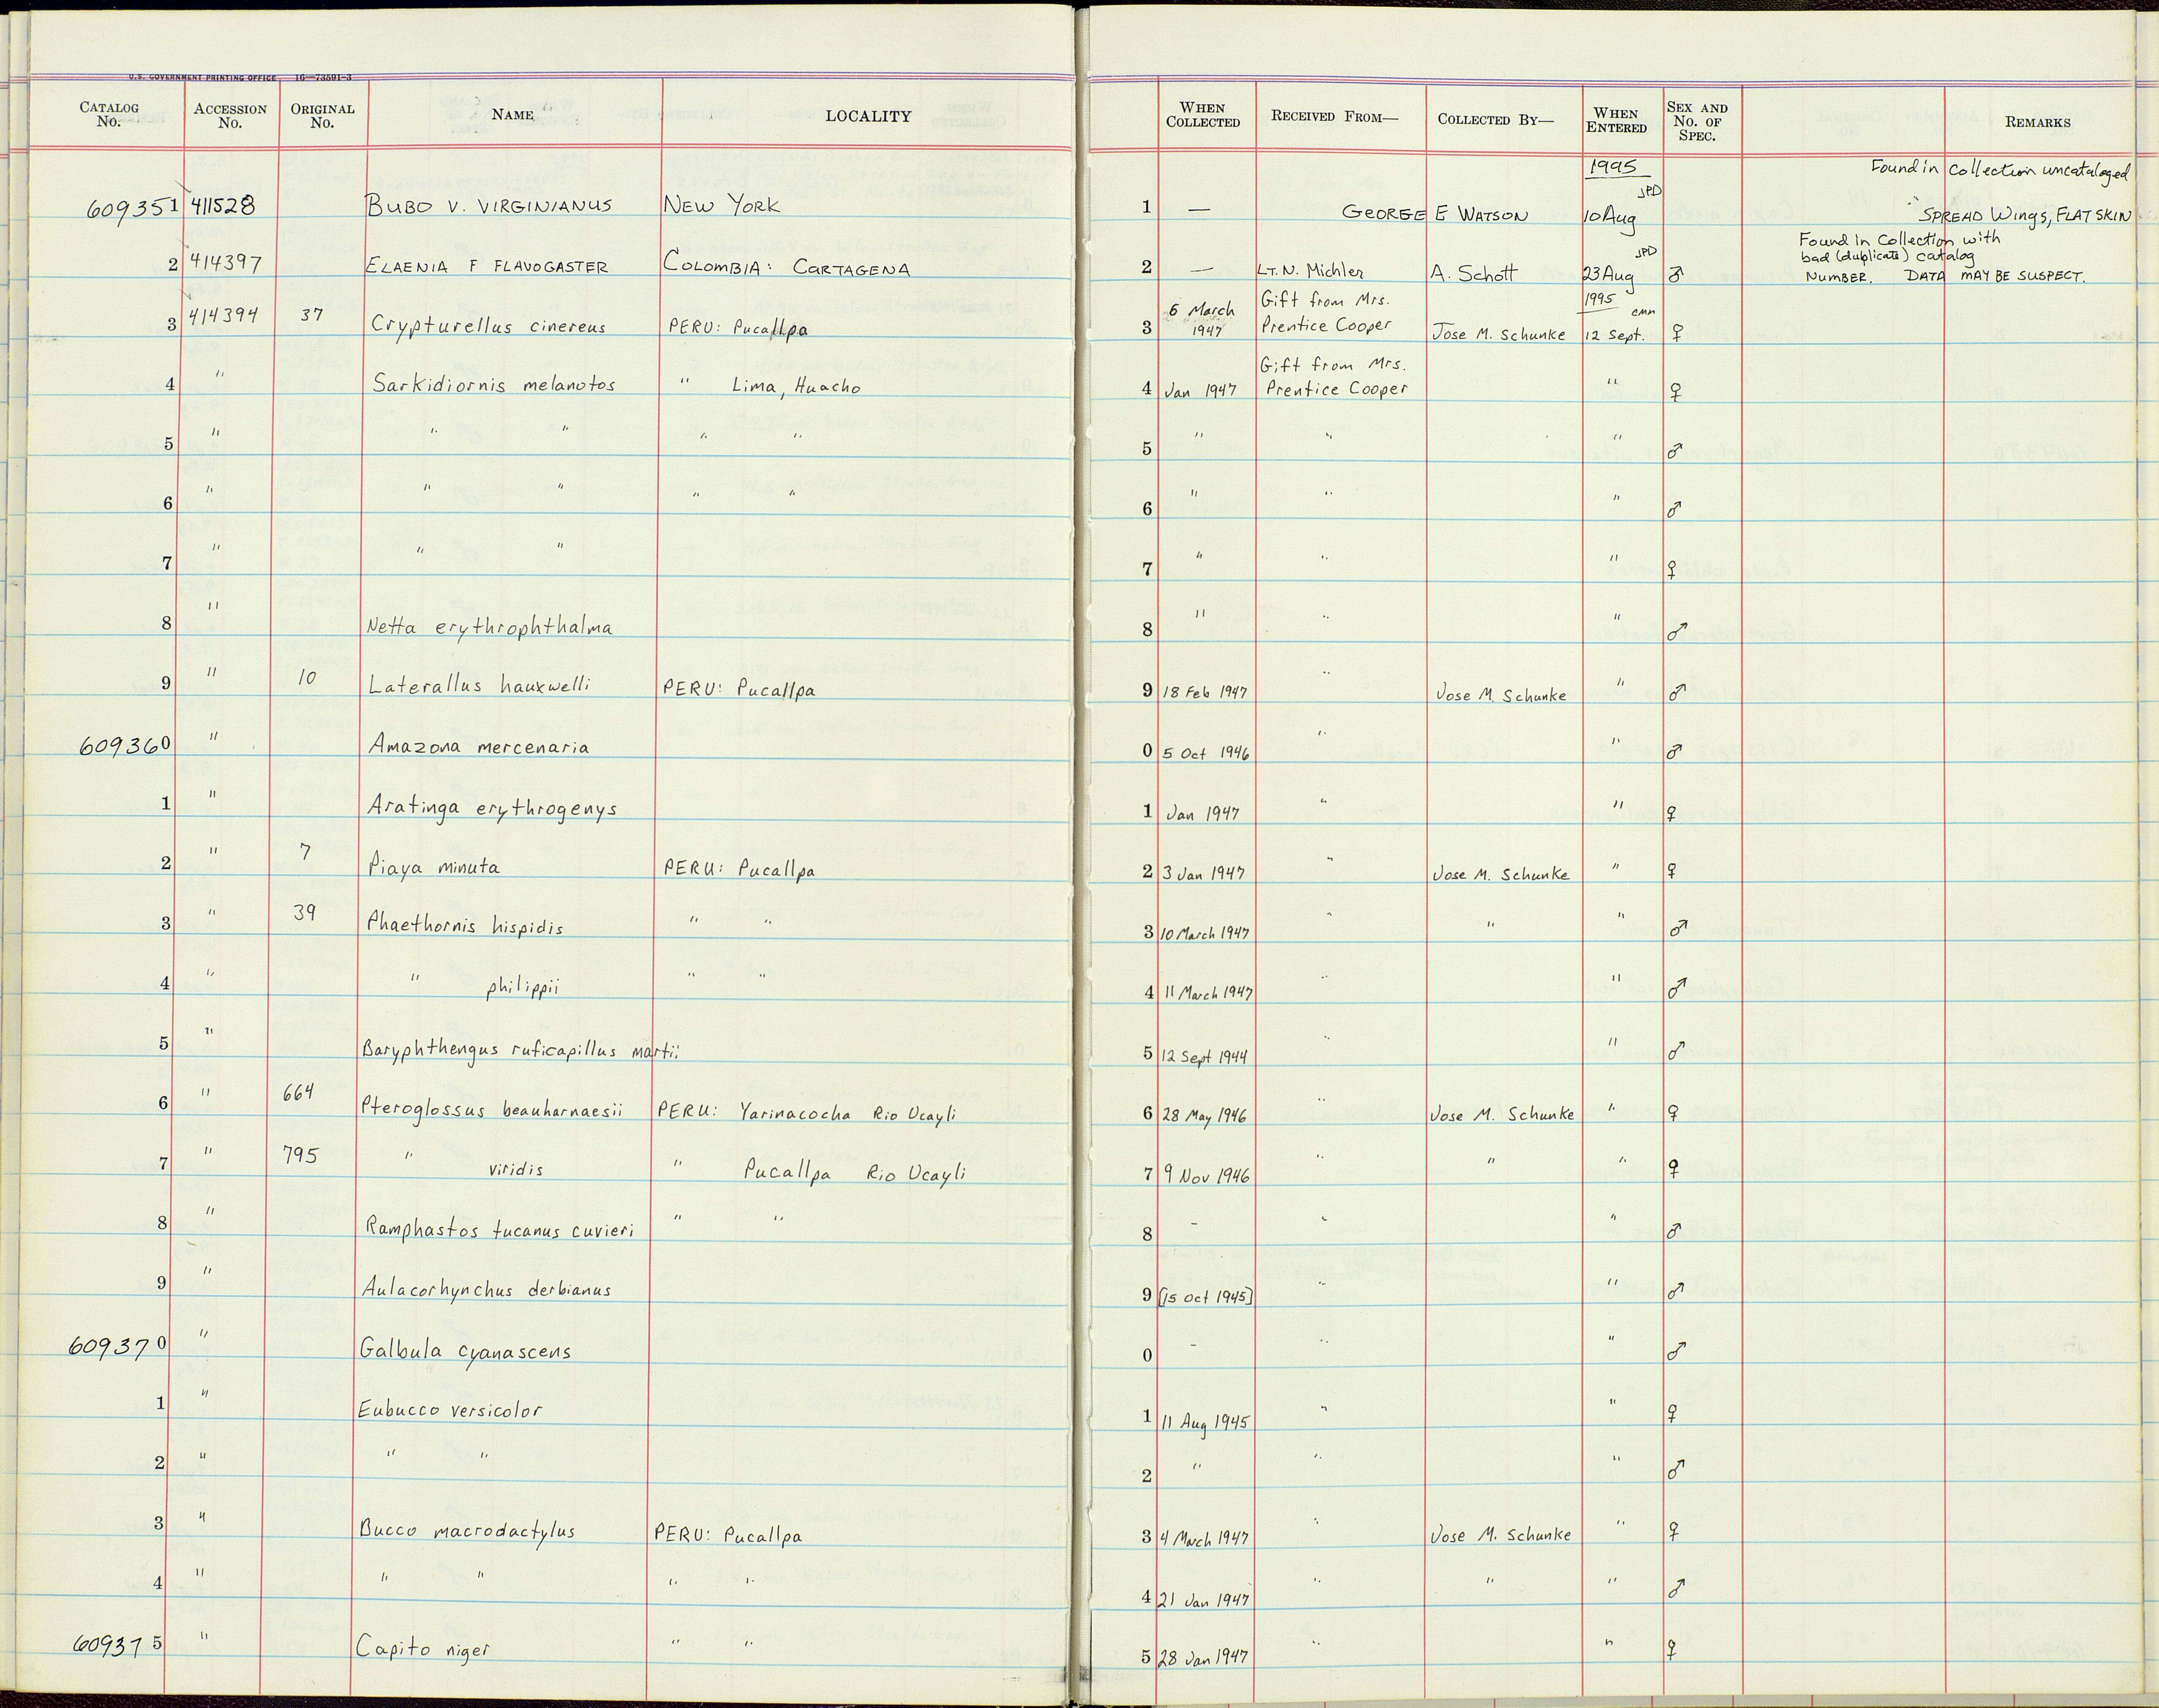 U.S. GOVERNMENT PRINTING OFFICE 16—73591-3
CATALOG No. ACCESSION No. ORIGINAL No. NAME LOCALITY WHEN COLLECTED RECEIVED FROM— COLLECTED BY— WHEN ENTERED SEX AND No. OF SPEC. REMARKS
1995 Found in collection uncataloged
JPD
609351 411528 BUBO V. VIRGINIANUS NEW YORK 1 — GEORGE E WATSON 10 Aug SPREAD Wings, FLAT SKIN
Found in Collection with
JPD bad (duplicate) catalog
2 414397 ELAENIA F FLAVOGASTER COLOMBIA: CARTAGENA 2 — LT. N. Michler A. Schott 23 Aug ♂ NUMBER. DATA MAY BE SUSPECT.
6 March Gift from Mrs. 1995 cmm
3 414394 37 Crypturellus cinereus PERU: Pucallpa 3 1947 Prentice Cooper Jose M. Schunke 12 Sept. ♀
Gift from Mrs.
4 " Sarkidiornis melanotos " Lima, Huacho 4 Jan 1947 Prentice Cooper " ♀
5 " " " " " 5 " " " ♂
6 " " " " " 6 " " " ♂
7 " " " 7 " " " ♀
8 " Netta erythrophthalma 8 " " " ♂
9 " 10 Laterallus hauxwelli PERU: Pucallpa 9 18 Feb 1947 " Jose M. Schunke " ♂
609360 " Amazona mercenaria 0 5 Oct 1946 " " ♂
1 " Aratinga erythrogenys 1 Jan 1947 " " ♀
2 " 7 Piaya minuta PERU: Pucallpa 2 3 Jan 1947 " Jose M. Schunke " ♀
3 " 39 Phaethornis hispidis " " 3 10 March 1947 " " " ♂
4 " " philippii " " 4 11 March 1947 " " ♂
5 " Baryphthengus ruficapillus martii 5 12 Sept 1944 " " ♂
6 " 664 Pteroglossus beauharnaesii PERU: Yarinacocha Rio Ucayli 6 28 May 1946 " Jose M. Schunke " ♀
7 " 795 " viridis " Pucallpa Rio Ucayli 7 9 Nov 1946 " " " ♀
8 " Ramphastos tucanus cuvieri " " 8 - " " ♂
9 " Aulacorhynchus derbianus 9 [15 Oct 1945] " " ♂
609370 " Galbula cyanascens 0 - " " ♂
1 " Eubucco versicolor 1 11 Aug 1945 " " ♀
2 " " " 2 " " " ♂
3 " Bucco macrodactylus PERU: Pucallpa 3 4 March 1947 " Jose M. Schunke " ♀
4 " " " " " 4 21 Jan 1947 " " " ♂
609375 " Capito niger " " 5 28 Jan 1947 " " ♀